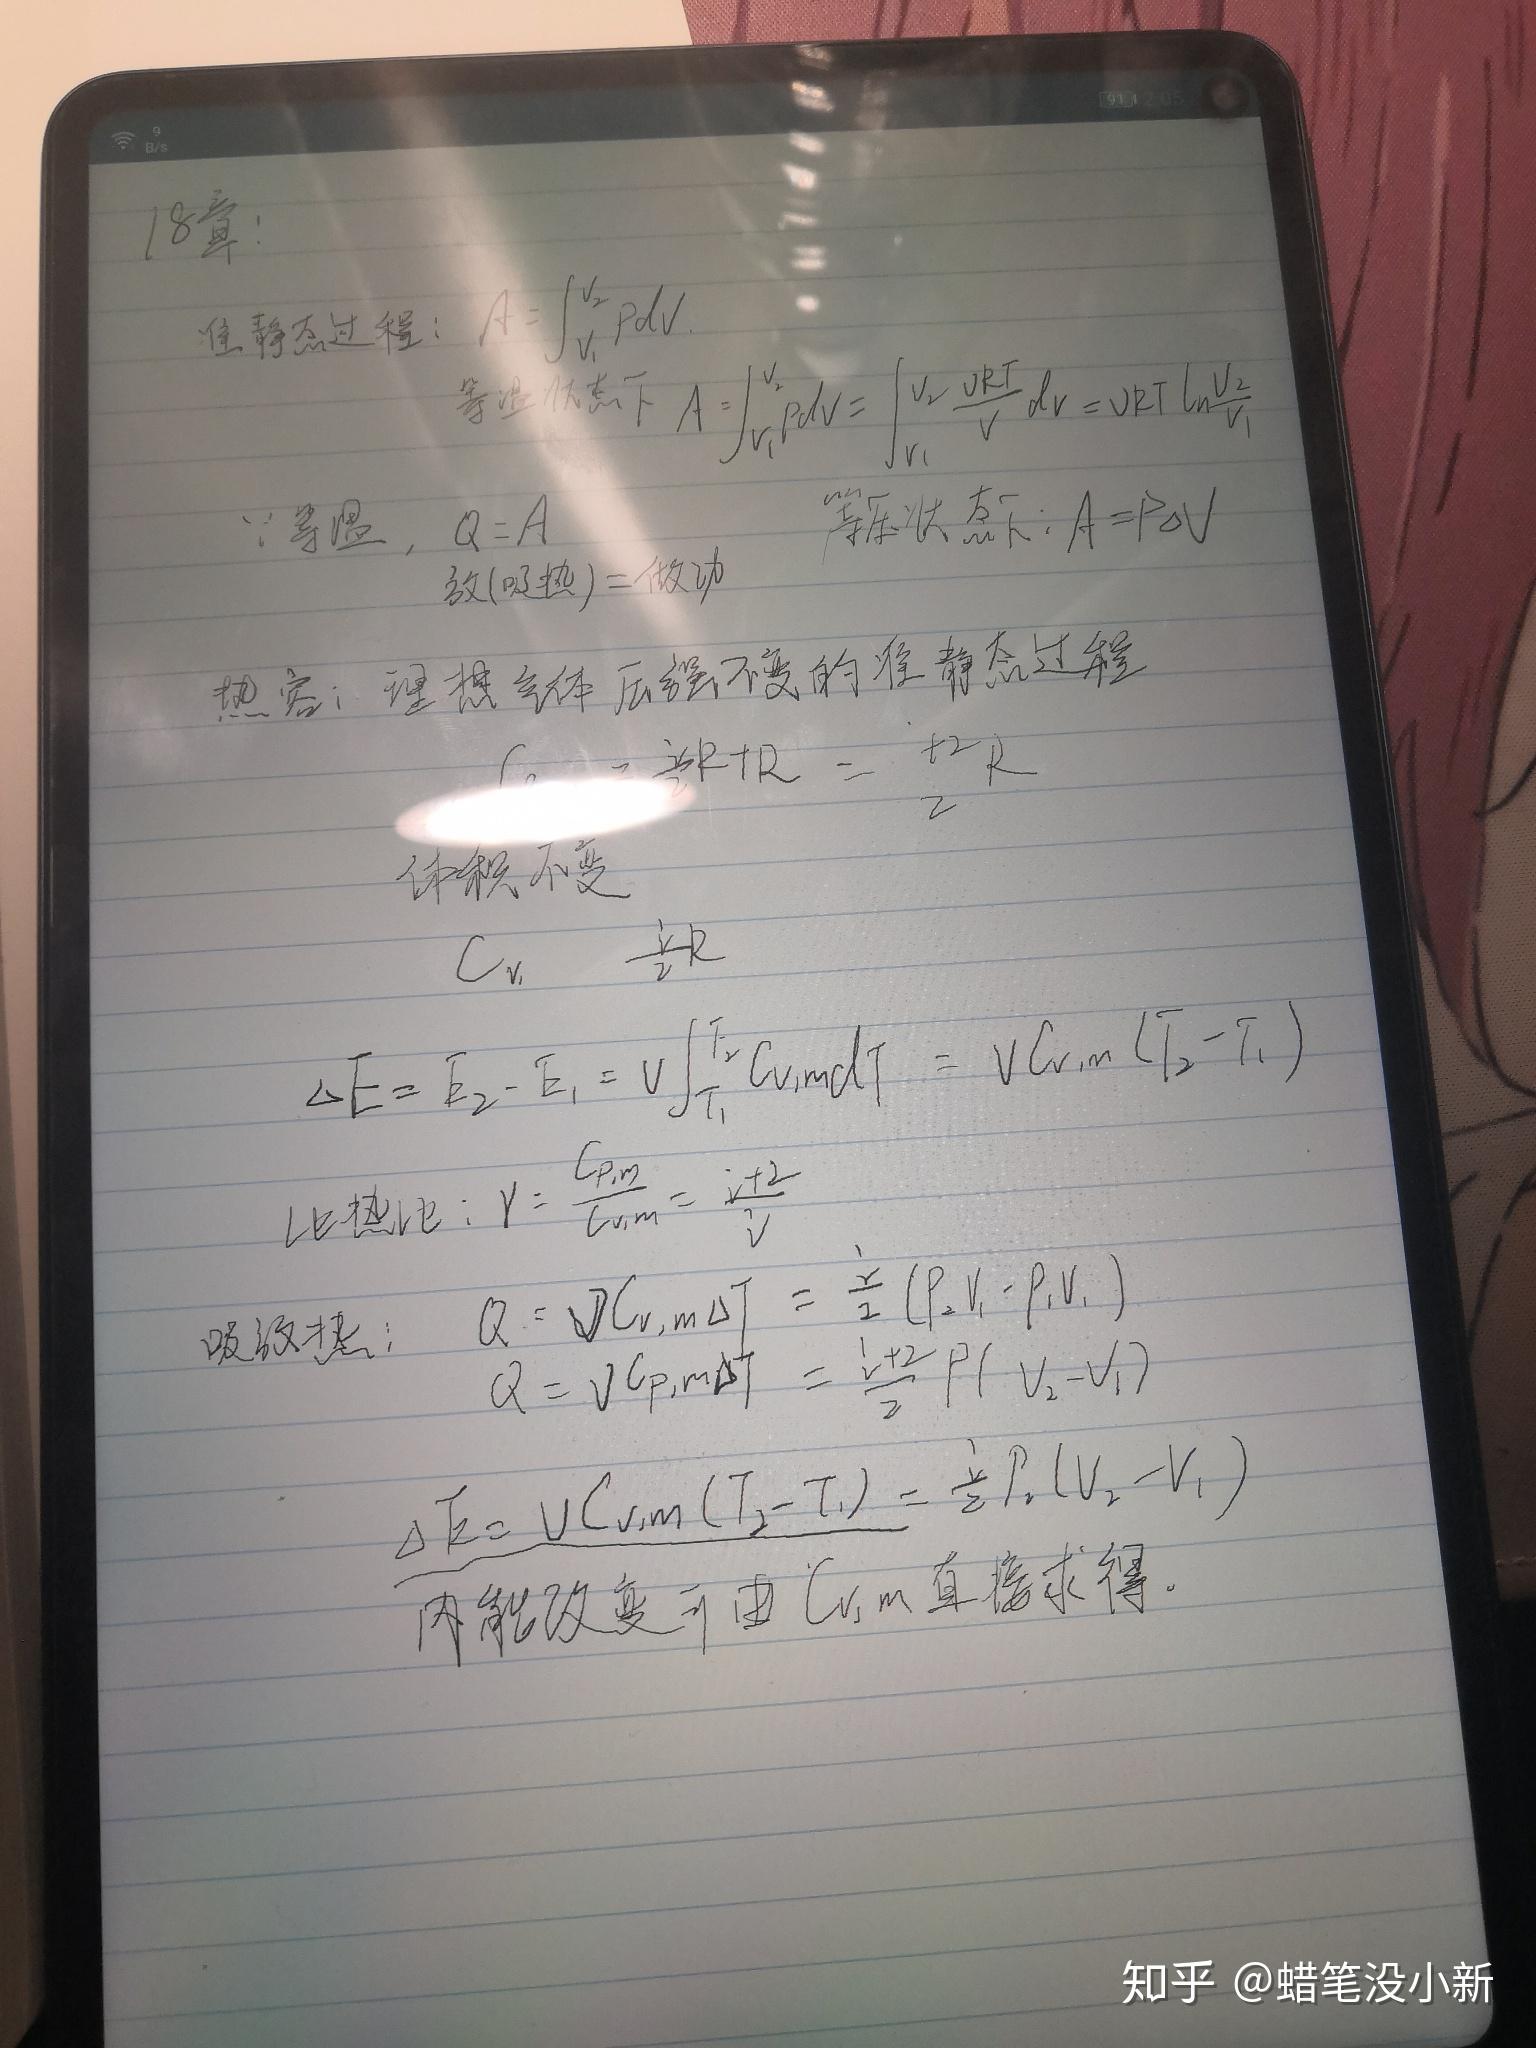 9
B/s
91 2:05
18章:
准静态过程: A=∫_{V₁}^{V₂} PdV.
等温状态下 A=∫_{V₁}^{V₂} pdV=∫_{V₁}^{V₂} \frac{νRT}{V} dV=νRT ln\frac{V₂}{V₁}
∵等温, Q=A 等压状态下: A=PΔV
放(吸热)=做功
热容: 理想气体压强不变的准静态过程
= \frac{i}{2}R+R = \frac{+2}{2} R
体积不变
C_{V,} \frac{i}{2}R
ΔE= E₂-E₁=ν∫_{T₁}^{T₂} C_{V,m}dT = νC_{V,m}(T₂-T₁)
比热比: γ=\frac{C_{P,m}}{C_{V,m}}=\frac{i+2}{i}
吸放热: Q=νC_{V,m}ΔT = \frac{i}{2}(P₂V₁-P₁V₁)
Q=νC_{P,m}ΔT = \frac{i+2}{2}P(V₂-V₁)
ΔE=νC_{V,m}(T₂-T₁)=\frac{i}{2}P₂(V₂-V₁)
内能改变可由C_{V,m}直接求得.
知乎 @蜡笔没小新